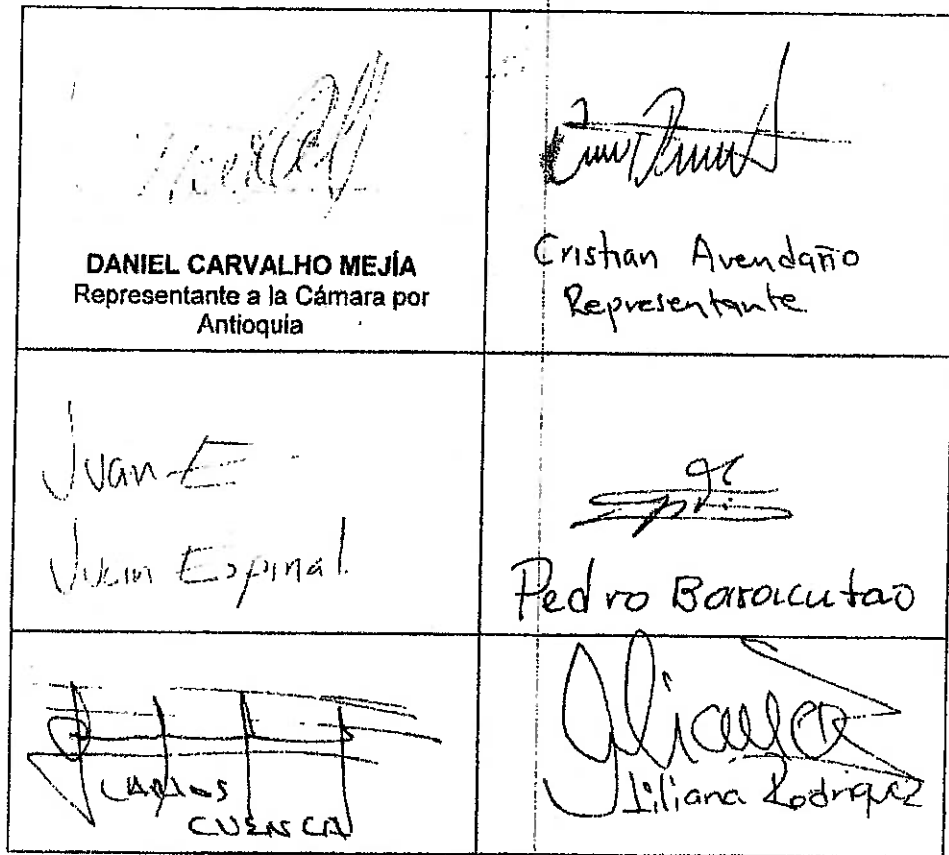 DANIEL CARVALHO MEJÍA
Representante a la Cámara por
Antioquia
Cristian Avendaño
Representante
Juan E
Juan Espinal
Pedro Baracutao
CARLOS
CUENCA
Liliana Rodriguez